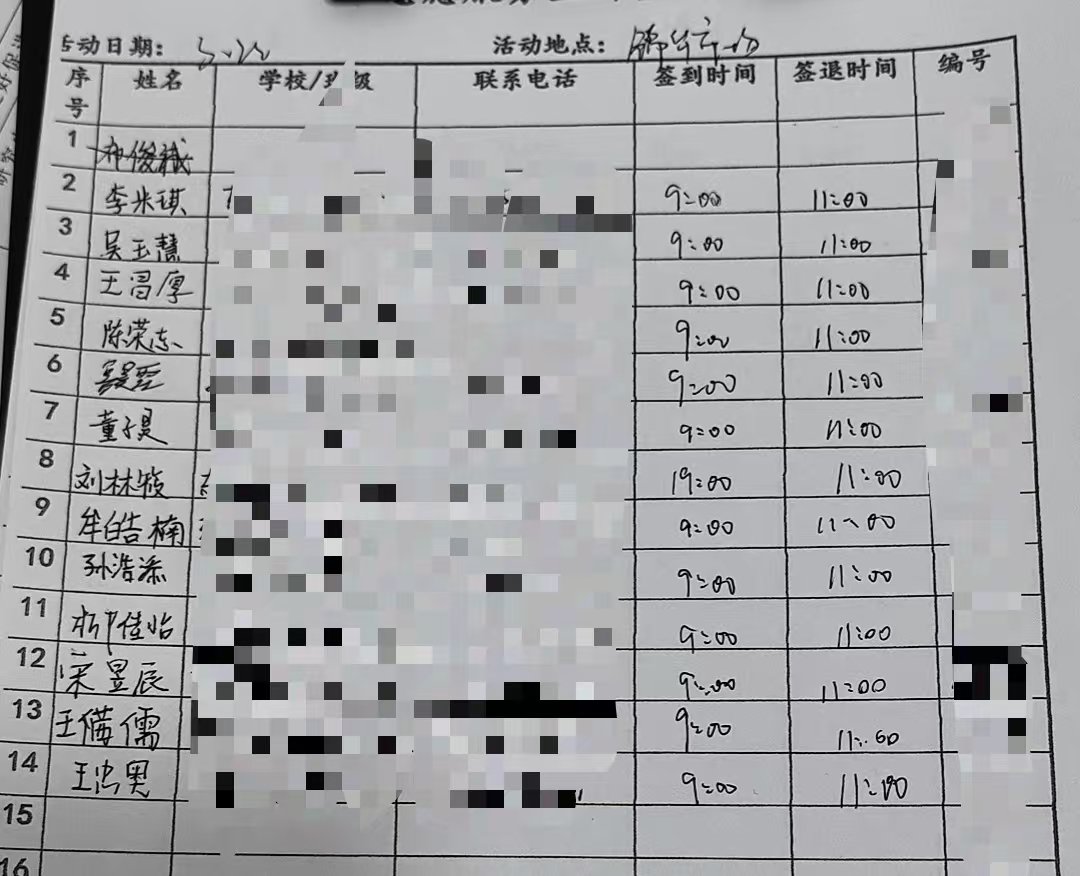 活动日期： 活动地点：
序号 姓名 学校/ 级 联系电话 签到时间 签退时间 编号
1 俊
2 李米琪 9:00 11:00
3 吴玉慧 9:00 11:00
4 王昌厚 9:00 11:00
5 陈荣东 9:00 11:00
6 9:00 11:00
7 董子昊 9:00 11:00
8 刘林筱 19:00 11:00
9 牟皓楠 9:00 11:00
10 孙浩添 9:00 11:00
11 柳佳怡 9:00 11:00
12 宋昱辰 9:00 11:00
13 王 儒 9:00 11:00
14 王 奥 9:00 11:00
15
16